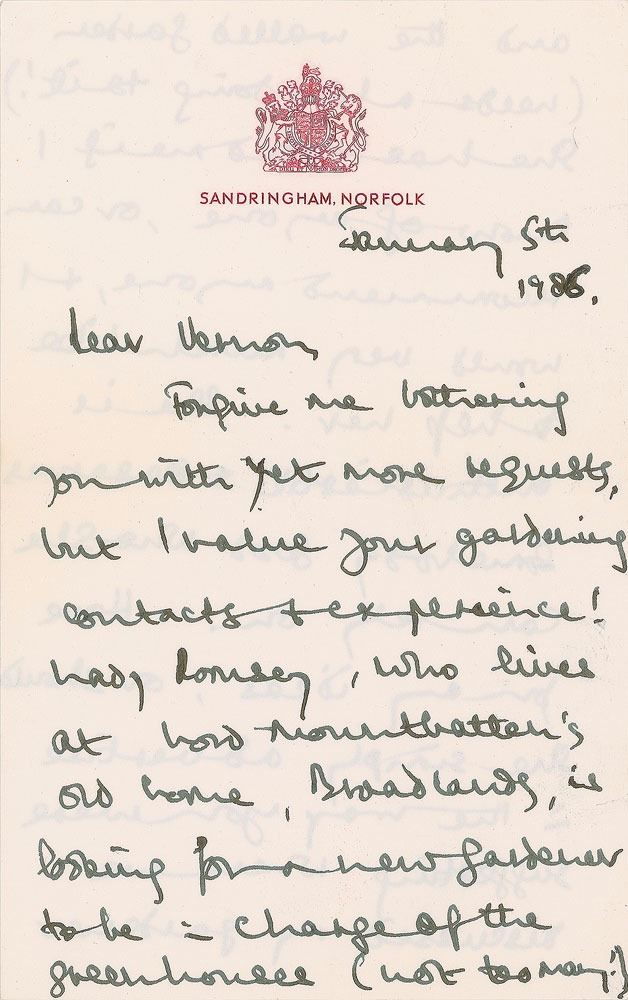 SANDRINGHAM, NORFOLK
January 5th
1986.
Dear Vernon,
Forgive me bothering
you with yet more requests,
but I value your gardening
contacts & experience!
Lady Romsey, who lives
at Lord Mountbatten's
old home, Broadlands, is
looking for a new gardener
to be in charge of the
greenhouses (not too many!)